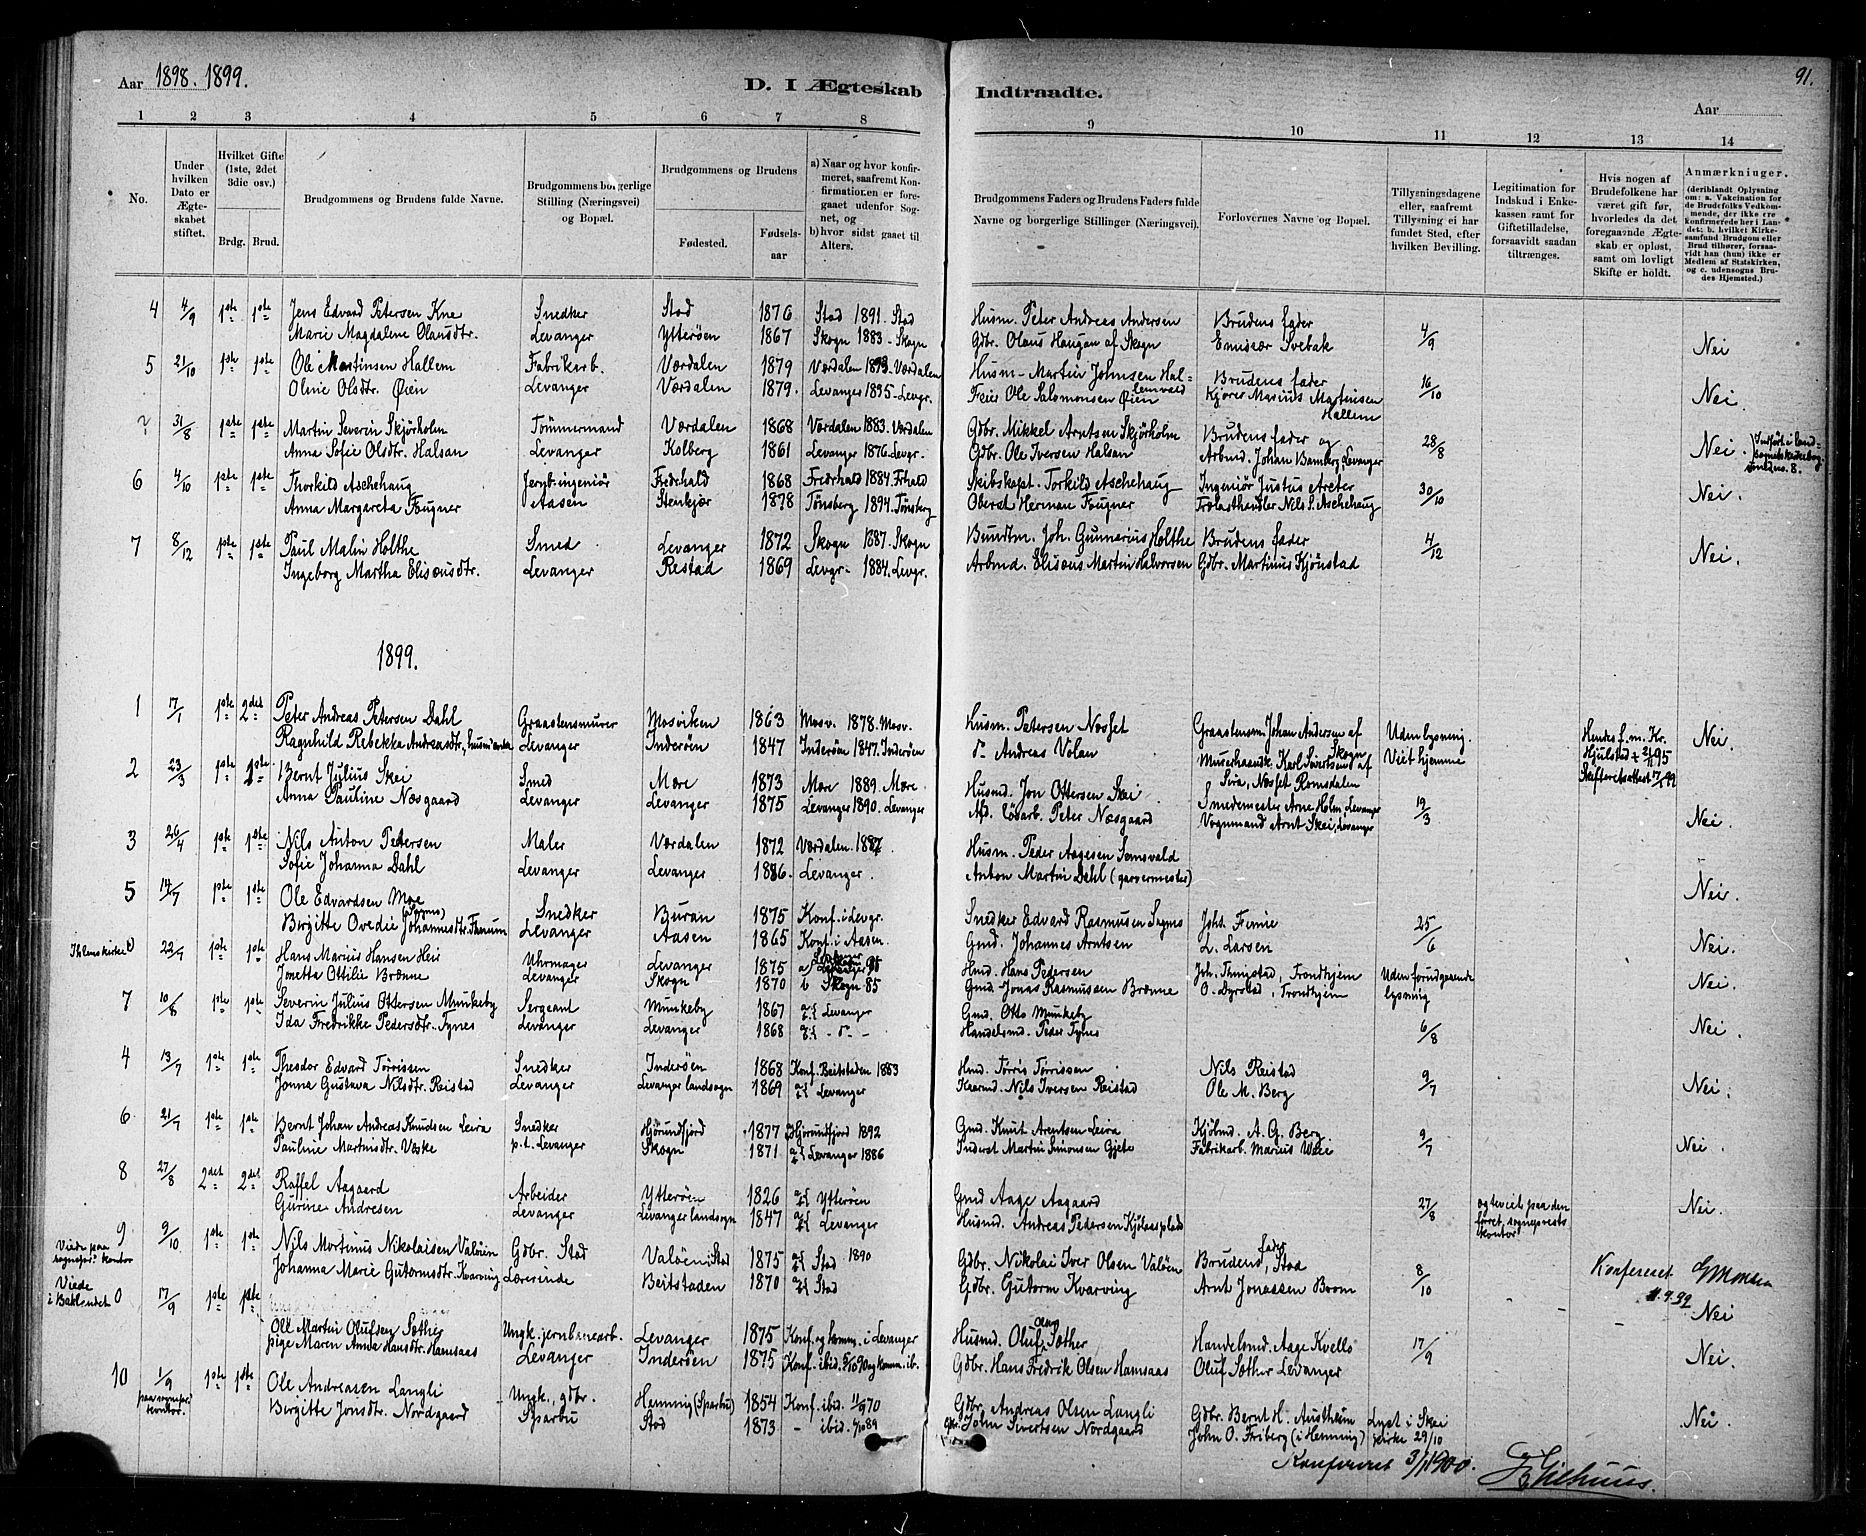 Aar 1898. 1899. D. I Ægteskab Indtraadte. Aar 91.
1 2 3 4 5 6 7 8 9 10 11 12 13 14
No.
Under hvilken Dato er Ægteskabet stiftet.
Hvilket Gifte (1ste, 2det 3die osv.)
Brdg. Brud.
Brudgommens og Brudens fulde Navne.
Brudgommens borgerlige Stilling (Næringsvei) og Bopæl.
Brudgommens og Brudens
Fødested. Fødselsaar
a) Naar og hvor konfirmeret, saafremt Konfirmationen er foregaaet udenfor Sognet, og
b) hvor sidst gaaet til Alters.
Brudgommens Faders og Brudens Faders fulde Navne og borgerlige Stillinger (Næringsvei).
Forlovernes Navne og Bopæl.
Tillysningsdagene eller, saafremt Tillysning ei har fundet Sted, efter hvilken Bevilling.
Legitimation for Indskud i Enkekassen samt for Giftetilladelse, forsaavidt saadan tiltrænges.
Hvis nogen af Brudefolkene har været gift før, hvorledes da det foregaaende Ægteskab er opløst, samt om lovligt Skifte er holdt.
Anmærkninger. (deriblandt Oplysning om: a. Vakcination for de Brudefolks Vedkommende, der ikke ere konfirmerede her i Landet; b. hvilket Kirkesamfund Brudgom eller Brud tilhører, forsaavidt han (hun) ikke er Medlem af Statskirken, og c. udensogns Brudes Hjemsted.)
4 4/9 1ste 1ste Jens Edvard Petersen Kne Snedker Stod 1876 Stod 1891. Stod Husm. Peter Andreas Andersen Brudens fader 4/9
Marie Magdaline Olausdtr. Levanger Ytterøen 1867 Skogn 1883 - Skogn Gdbr. Olaus Haugan af Skogn Emissær Svebak Nei
5 21/10 1ste 1ste Ole Martinsen Hallem Fabrikarb. Værdalen 1879 Værdalen 1893 - Værdalen Husm - Martin Johnsen Hallemvald Brudens fader 16/10
Oline Olsdtr. Øien Levanger Værdalen 1879. Levanger 1895 - Levgr. Feier Ole Salomonsen Øien Kjører Marius Martinsen Hallem Nei.
? 31/8 1ste 1ste Martin Severin Skjørholm Tømmermand Værdalen 1868 Værdalen 1883. Værdalen Gdbr. Mikkel Arntsen Skjørholm Brudens fader og 28/8
Anna Sofie Olsdtr. Halsan Levanger Kolberg 1861 Levanger 1876. Levgr. Gdbr. Ole Iversen Halsan Arbmd. Johan Bamberg, Levanger Nei. Indført i landsognets kirkebog under no. 8.
6 4/10 1ste 1ste Thorkild Aschehaug Jernb.ingeniør Fredrhald 1868 Fredrhald 1884. Frhald Skibskapt. Torkild Aschehaug Ingeniør Justus Arcter 30/10
Anna Margareta Fougner Aasen Stenkjær 1878 Tønsberg 1894. Tønsberg Oberst Herman Fougner Trælasthandler Nils S. Aschehaug Nei.
7 8/12 1ste 1ste Paul Malin Holthe Smed Levanger 1872 Skogn 1887. Skogn Bundtm. Joh. Gunnerius Holthe Brudens fader 4/12
Ingeborg Martha Elisæusdtr. Levanger Restad 1869 Levgr. 1884. Levgr. Arbmd. Elisæus Martin Halvorsen Gdbr. Martinus Kjønstad Nei.
1899.
1 17/1 1ste 2det Peter Andreas Petersen Dahl Graastensmurer Mosviken 1863 Mosv. 1878. Mosv. Husm. Petersen Nosset Graastensm. Johan Andersen af Skogn Uden lysning. Hendes f. m. Kr. Hjulstad + 2/11 95 Nei.
Ragnhild Rebekka Andreasdtr. Levanger Inderøen 1847 Inderøen 1847. Inderøen do Andreas Volan Murerhaandl. Karl Sivertsen af Siva, Nosset Romsdalen Viet hjemme Skifteretsattest
2 23/3 1ste 1ste Bernt Julius Skei Smed Mære 1873 Mære 1889. Mære. Husmd. Jon Ottersen Skei Smedemester Arne Holm, Levanger 19/3
Anna Pauline Næsgaard Levanger Levanger 1875 Levanger 1890. Levanger Afd. løsarb. Peter Næsgaard Vognmand Arnt Skei, Levanger Nei.
3 26/4 1ste 1ste Nils Anton Petersen Maler Værdalen 1872 Værdalen. 1887. Husm. Peder Aagesen Semsvald
Sofie Johanna Dahl Levanger Levanger 1886. Levanger. Anton Martin Dahl (garvermester) Nei.
5 14/7 1ste 1ste Ole Edvardsen Moe Snedker Buran 1875 Konf. i Levgr. Snedker Edvard Rasmusen Sognes Johs. Finne 25/6
Birgitte Ovedie Johannesdtr. Fanum Levanger Aasen 1865 Konf. i Aasen. Gmd. Johannes Arntsen L. Larsen Nei.
Ihlens kirke 22/7 1ste 1ste Hans Marius Hansen Heir Uhrmager Levanger 1875 a) Levanger 90 Hmd. Hans Pedersen Joh. Tungstad, Trondhjem Uden forudgaaende lysning
Jonetta Ottilie Brønne Levanger Skogn 1870 b Skogn 85 Gmd. Jonas Rasmussen Brønne O. Dyrstad, Trondhjem Nei.
7 10/8 1ste 1ste Severin Julius Ottersen Munkeby Sergeant Munkeby 1867 Levanger Gmd. Otto Munkeby
Ida Fredrikke Pedersdtr. Tynes Levanger Levanger 1868 - do - Handelsmd. Peder Tynes 6/8 Nei.
4 13/7 1ste 1ste Theodor Edvard Tørrissen Snedker Inderøen 1868 Konf. Beitstaden 1883 Hmd. Tørris Tørrissen Nils Reistad 9/7
Jonna Gustava Nilsdtr. Reistad Levanger Levanger landsogn 1869 Levanger Kaarmd. Nils Iversen Reistad Ole M. Berg Nei.
6 21/7 1ste 1ste Bernt Johan Andreas Knudsen Leira Snedker Hjørundfjord 1877 Hjørundfjord 1892 Gmd. Knut Arentsen Leira Kjøbmd. A. G. Berg. 9/7
Pauline Martinsdtr. Veske p. t. Levanger Skogn 1871 Levanger 1886 Inderst Martin Simonsen Gjete Fabrikarb. Marius Veie Nei.
8 27/8 2det 2det Raffel Aagaard Arbeider Ytterøen 1826 Ytterøen Gmd Aage Aagaard 27/8 ogteviet paa den foret. sogneprests kontor Nei.
Gurine Andresen Levanger Levanger landsogn 1847 Levanger Husmd. Andreas Pedersen Kjøtaasplads
9 9/10 1ste 1ste Nils Mortinus Nikolaisen Valøien Gdbr. Stod Valøen i Stod 1875 Stod 1890 Gdbr. Nikolai Iver Olsen Valøen Brudens fader, Stod 8/10
Viede paa sognepr. kontor Johanna Marie Gutormsdtr. Kvarving Lærerinde Beitstaden 1870 Stod Gdbr. Gutorm Kvarving Arnt Jonassen Boom Konfereret 11.9.39 Nei
Viede i Baklandet 0 17/9 1ste 1ste Ole Martin Olufsen Sæther Ungk. jernbanearb. Levanger 1875 Konf. og komm. i Levanger Husmd. Oluf Aag Sæther Handelsmd. Aage Kvello 17/9
pige Maren Anna Hansdtr. Hamsaas Levanger Inderøen 1875 Konf. ibid. 5/10 90 og komm. ib. Gdbr. Hans Fredrik Olsen Hamsaas Oluf Sæther Levanger Nei.
10 1/9 1ste 1ste Ole Andreasen Langli Ungk., gdbr. Henning (Sparbu) 1854 Konf. ibid. 1/9 70 Gdbr. Andreas Olsen Langli Gdbr. Bernt H. Austheim Lyst i Skei kirke 29/10 Nei.
paa sognepr. kontor. Birgitte Jonsdtr. Nordgaard Sparbu Stod 1873 - ibid. 6/10 89 Gbr. John Sivertsen Nordgaard John O. Friberg (i Henning)
Konfereret 3/1 1900.